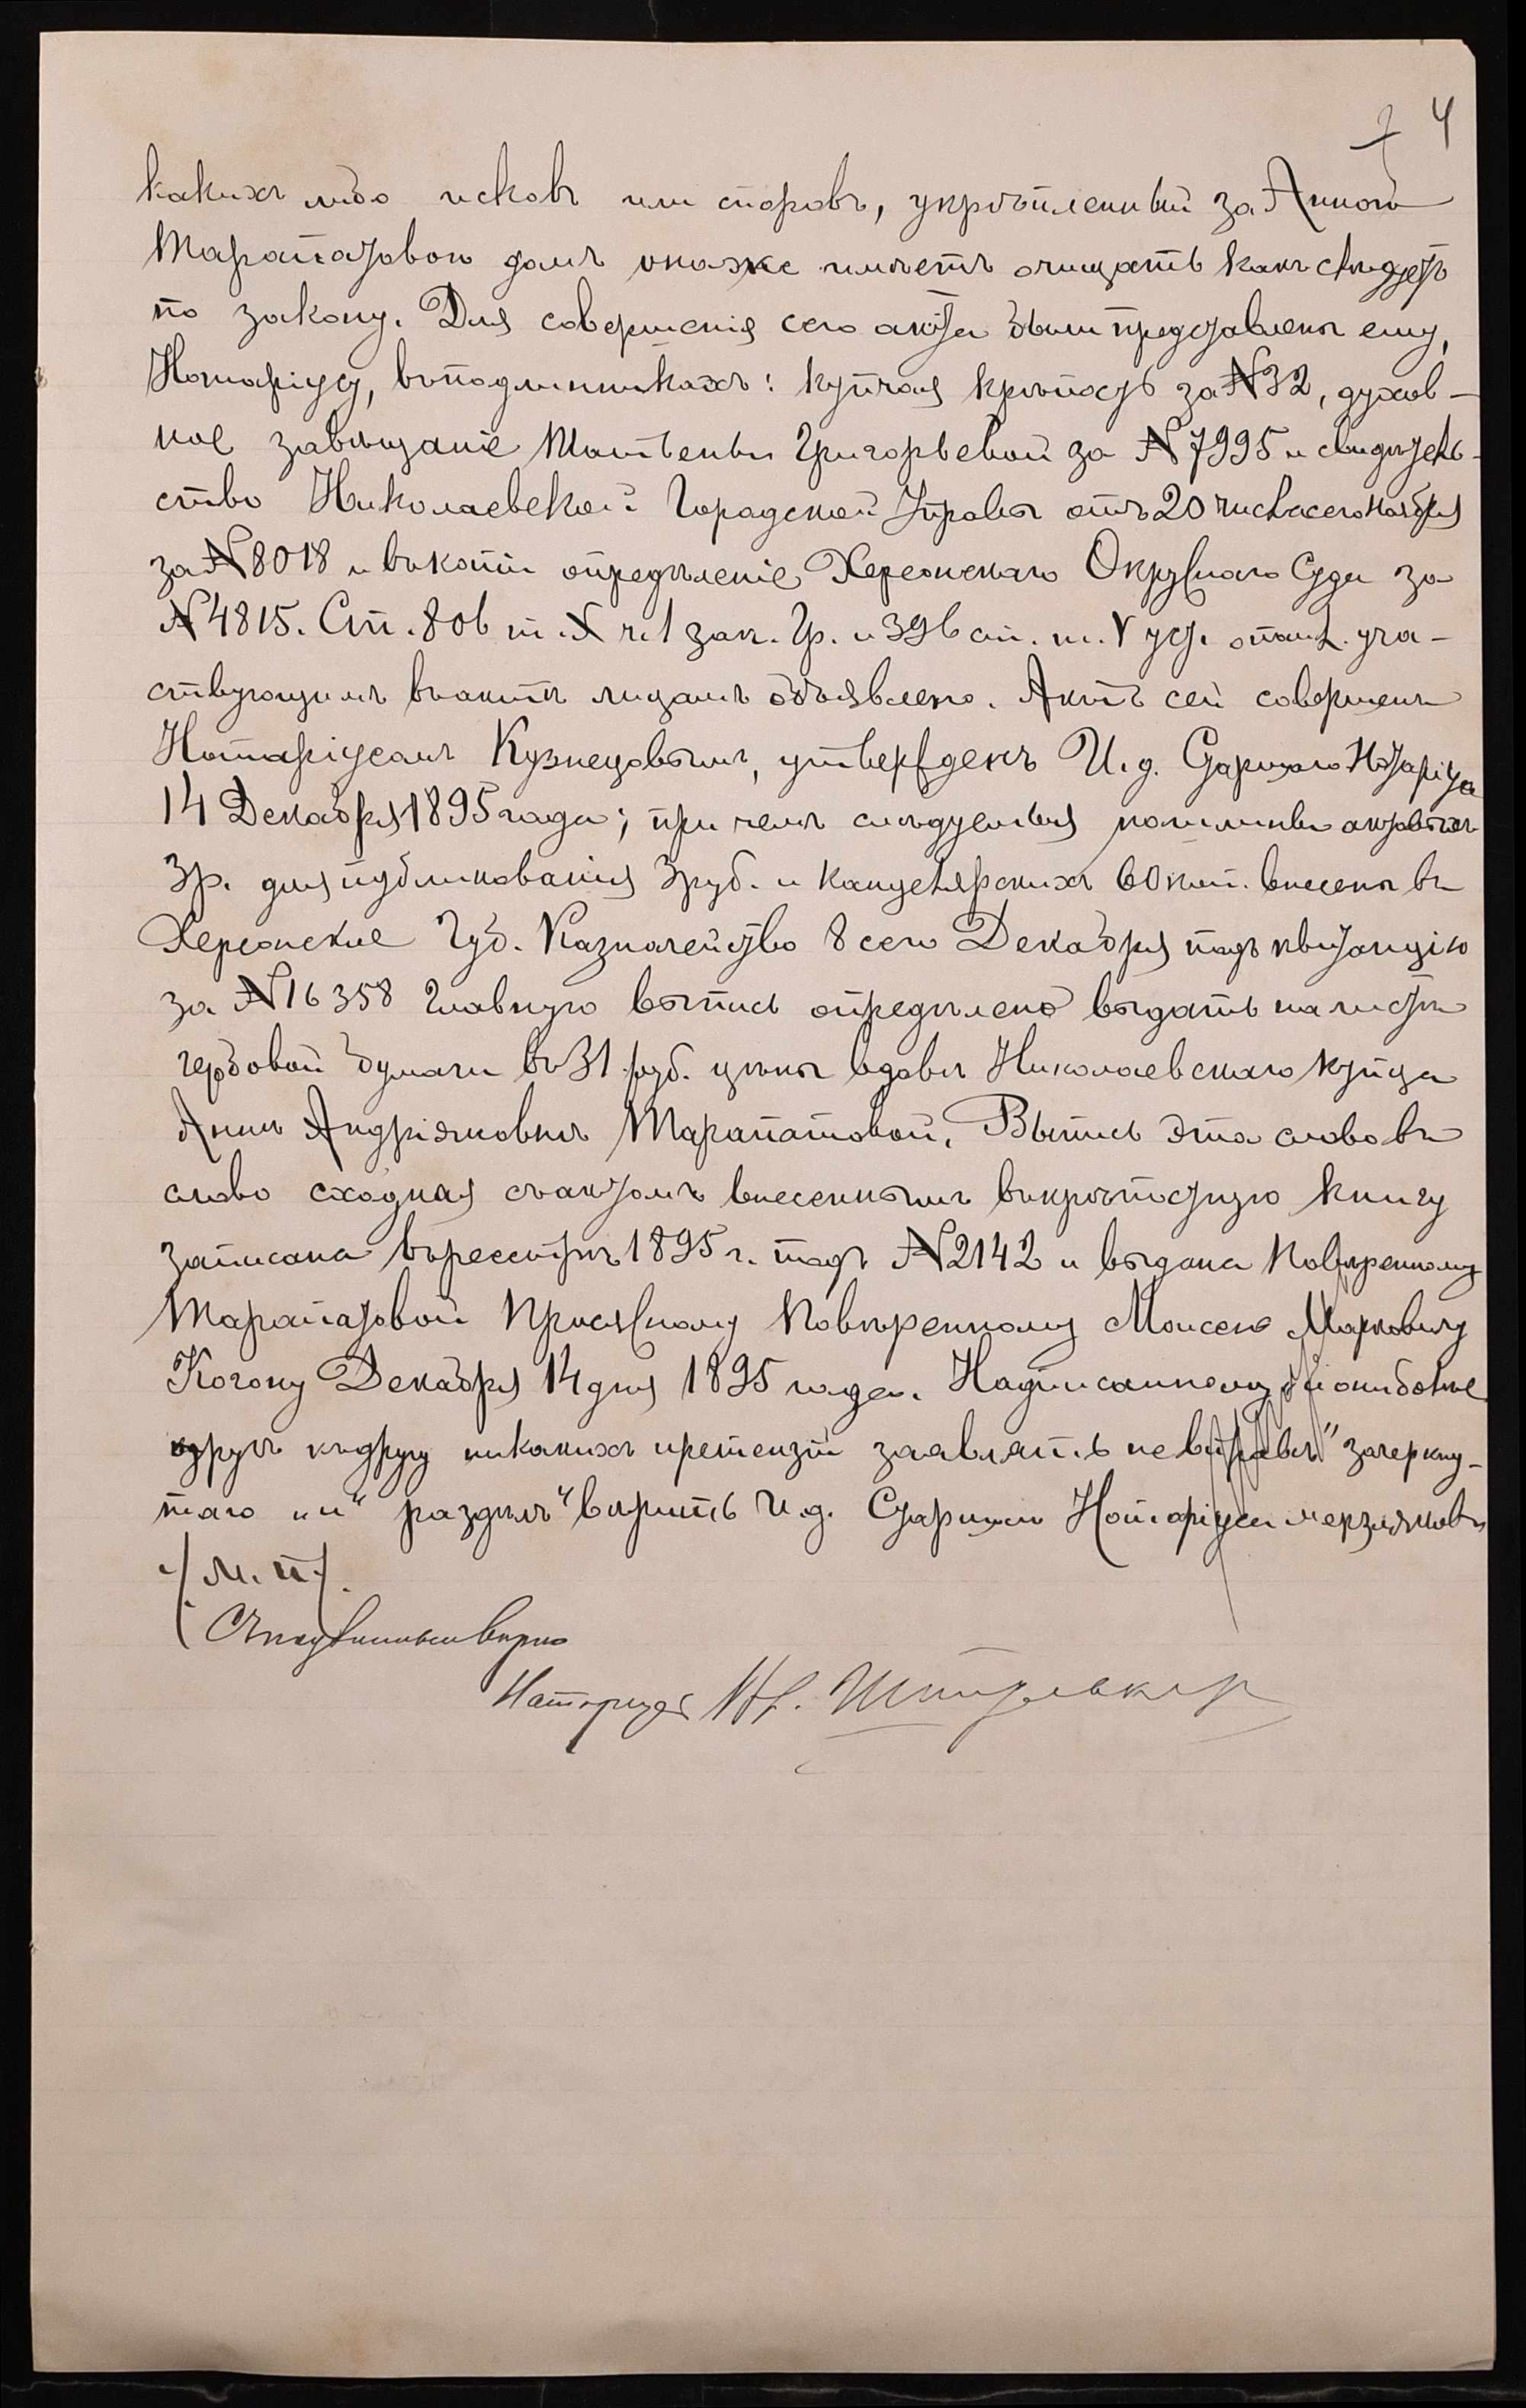 7 4
какихъ либо исковъ или споровъ, укрѣпленный за Анною
Тарапатовою домъ она же имѣетъ очищать какъ слѣдуетъ
по закону. Для совершенія сего акта были представлены ему,
Нотаріусу, въ подлинникахъ: купчая крѣпость за № 32, духов-
ное завѣщаніе Татьяны Григорьевой за № 7995 и свидѣтель-
ство Николаевской Городской Управы отъ 20 числа сего Ноября
за № 8018 и въ копіи опредѣленіе Херсонскаго Окружнаго Суда за
№ 4815. Ст. 806 т. X ч. 1 зак. Гр. и 396 ст. т. V уст. о пошл. уча-
ствующимъ въ актѣ лицамъ объявлено. Актъ сей совершенъ
Нотаріусомъ Кузнецовымъ, утвержденъ И. д. Старшаго Нотаріуса
14 Декабря 1895 года; при чемъ слѣдуемыя пошлины актовыхъ
3 р. для публикованія 3 руб. и канцелярскихъ 60 коп. внесены въ
Херсонское Губ. Казначейство 8 сего Декабря подъ квитанцію
за № 16358 Главную выпись опредѣлено выдать на листѣ
гербовой бумаги въ 31 руб. цѣны вдовѣ Николаевскаго купца
Аннѣ Андріяновнѣ Тарапатовой. Выпись эта слово въ
слово сходная съ актомъ внесеннымъ въ крѣпостную книгу
записана въ реестрѣ 1895 г. подъ № 2142 и выдана Повѣренному
Тарапатовой Присяжному Повѣренному Моисею Марковичу
Когону Декабря 14 дня 1895 года. Надписанному ошибочне
другъ къ другу никакихъ претензій заявлять не вправѣ" зачеркну-
таго „и" раздѣлъ" вѣрить И. д. Старшаго Нотаріуса Мерзляковъ
/М. П/.
Съ подлиннымъ вѣрно
Нотаріусъ